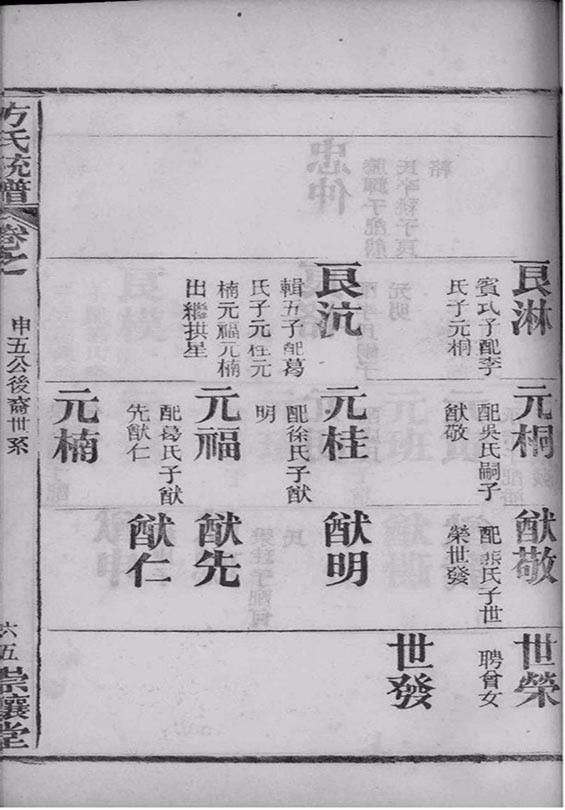 良淋
賓式子配李
氏子元桐
良沆
輯五子配葛
氏子元桂元
楠元福元楠
出繼拱星
元桐
配吳氏嗣子
猷敬
元桂
配徐氏子猷
明
元福
配葛氏子猷
先猷仁
元楠
猷敬
配熊氏子世
榮世發
猷明
猷先
猷仁
世榮
聘曾女
世發
方氏統譜
卷之
申五公後裔世系
六五
崇讓堂